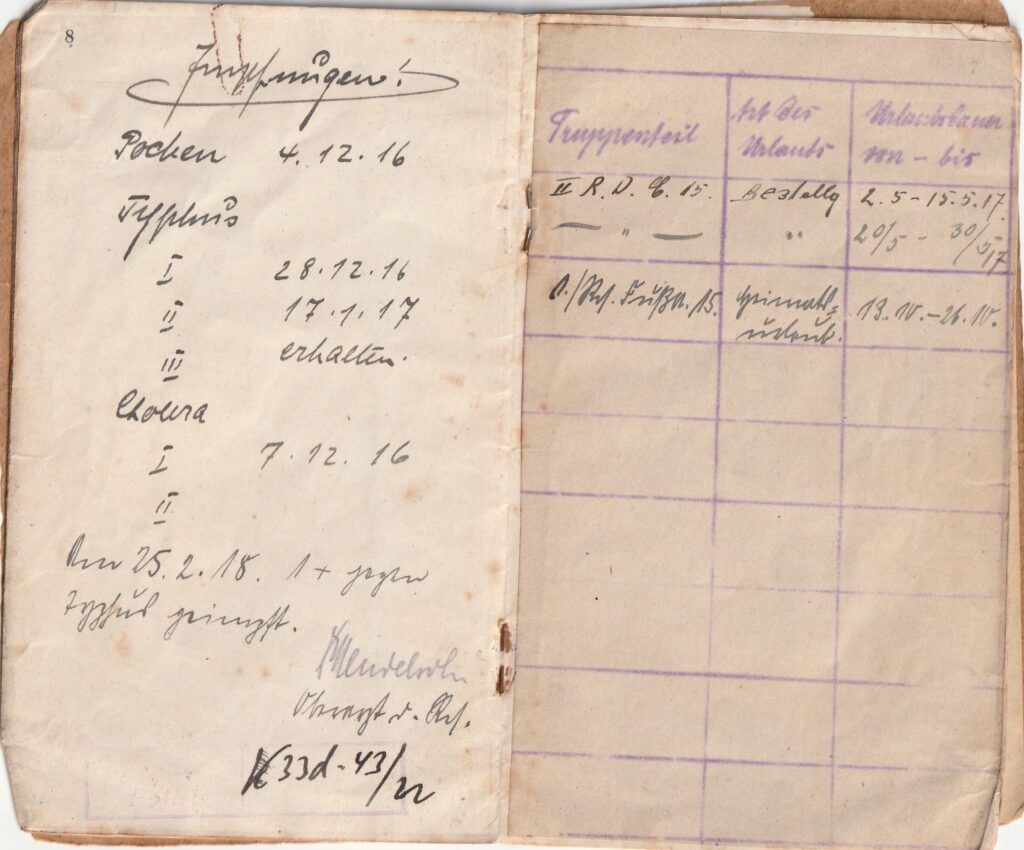 8
Impfungen!
Pocken 4.12.16
Typhus
I 28.12.16
II 17.1.17
III erhalten.
Cholera
I 7.12.16
II
Am 25.2.18. 1 x gegen
Typhus geimpft.
Mendelsohn
Oberarzt d. Res.
33d-43/22
Truppenteil Art des Urlaubs Urlaubsdauer von - bis
II R. D. C. 15. Bestellg 2.5 - 15.5.17.
— " — " 20/5 - 30/5 17
1./Res. Fußa. 15. Heimats=
urlaub. 13.10. - 26.10.